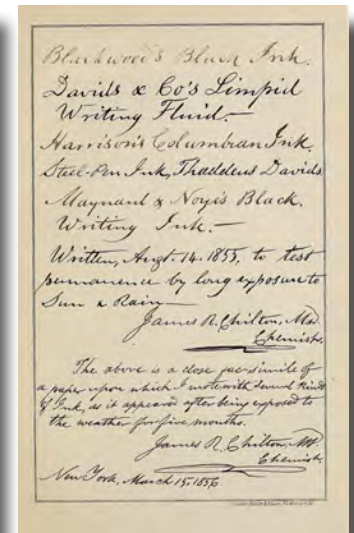 Blackwood's Black Ink.
Davids & Co's Limpid
Writing Fluid.—
Harrison's Columbian Ink.
Steel-Pen Ink, Thaddeus Davids.
Maynard & Noye's Black.
Writing Ink.—
Written, Augt. 14. 1855, to test
permanence by long exposure to
Sun & Rain—
James R. Chilton, Md.
Chemist.
The above is a close fac-simile of
a paper upon which I wrote with several kinds
of Ink, as it appeared after being exposed to
the weather for five months.
James R. Chilton, Md.
Chemist.
New York, March 15, 1856.